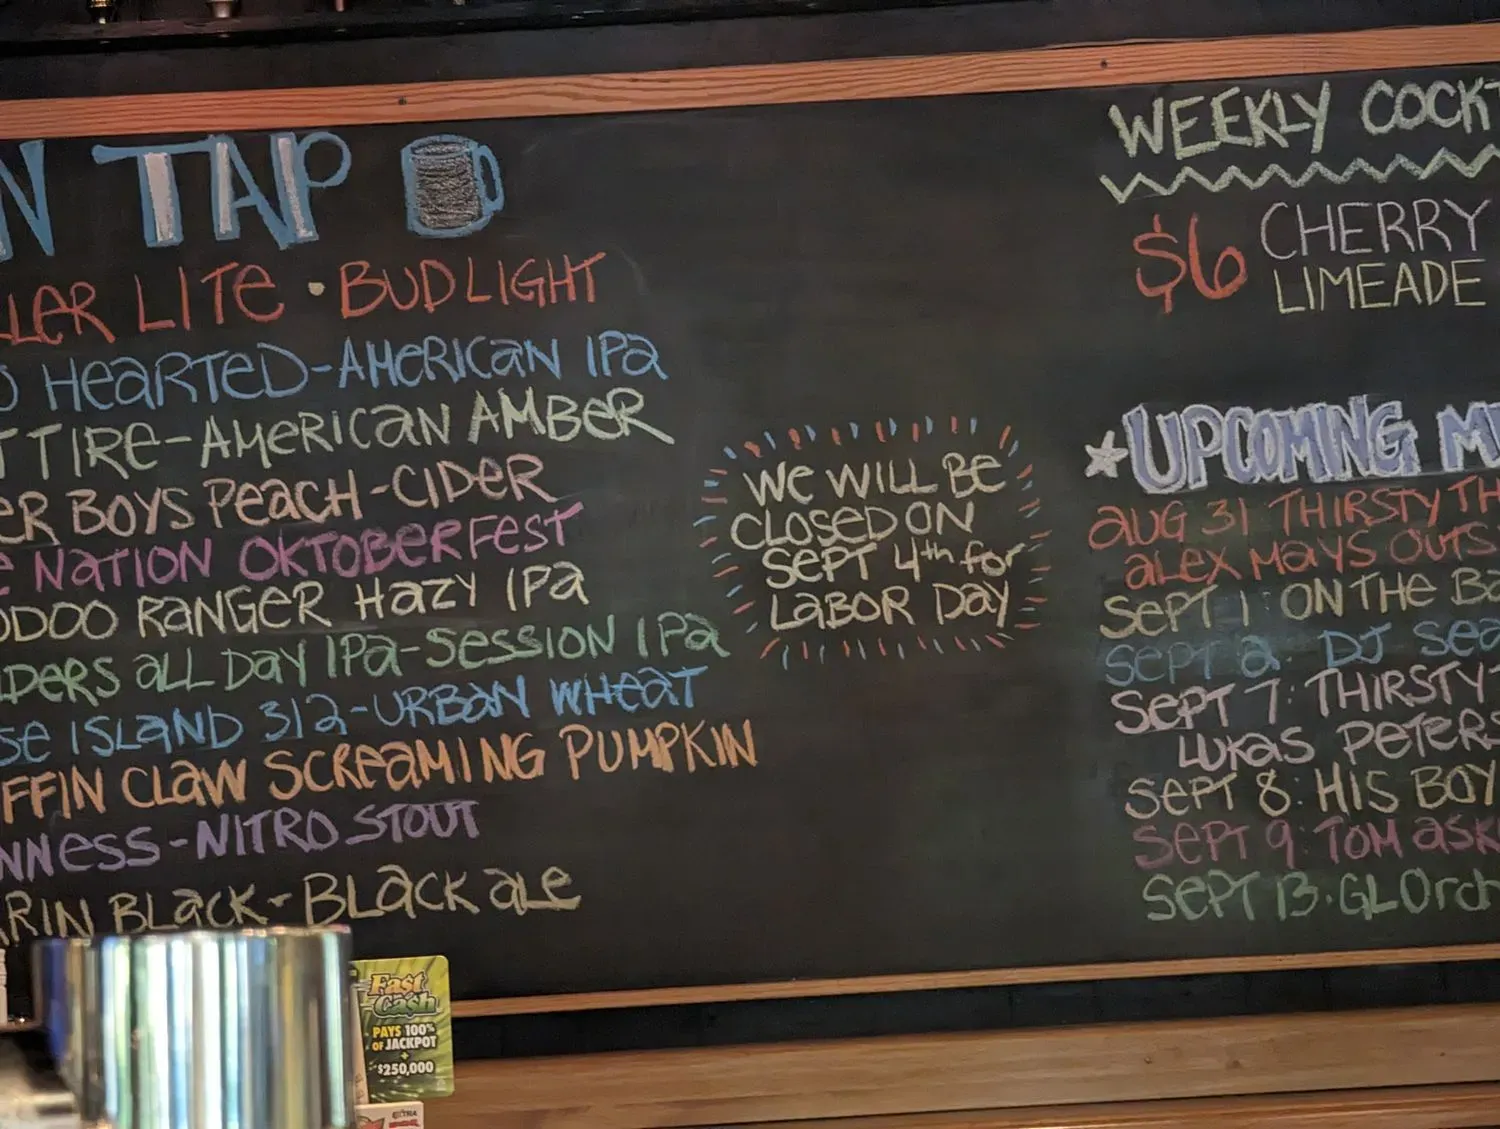 N TAP
LLER LITE · BUD LIGHT
O HEARTED-AMERICAN IPA
T TIRE-AMERICAN AMBER
ER BOYS PEACH-CIDER
E NATION OKTOBERFEST
ODOO RANGER HAZY IPA
NDERS ALL DAY IPA-SESSION IPA
SE ISLAND 312-URBAN WHEAT
FFIN CLAW SCREAMING PUMPKIN
NNESS-NITRO STOUT
RIN BLACK-BLACK ALE
WE WILL BE
CLOSED ON
SEPT 4th for
LABOR DAY
WEEKLY COCKT
$6 CHERRY
LIMEADE
UPCOMING MU
AUG 31 THIRSTY TH
ALEX MAYS OUTS
SEPT 1: ON THE BA
SEPT 2: DJ SEA
SEPT 7: THIRSTY T
LUKAS PETERS
SEPT 8: HIS BOY
SEPT 9: TOM ASK
SEPT 13: GLOrch
Fast
Cash
PAYS 100%
OF JACKPOT
+
$250,000
EXTRA